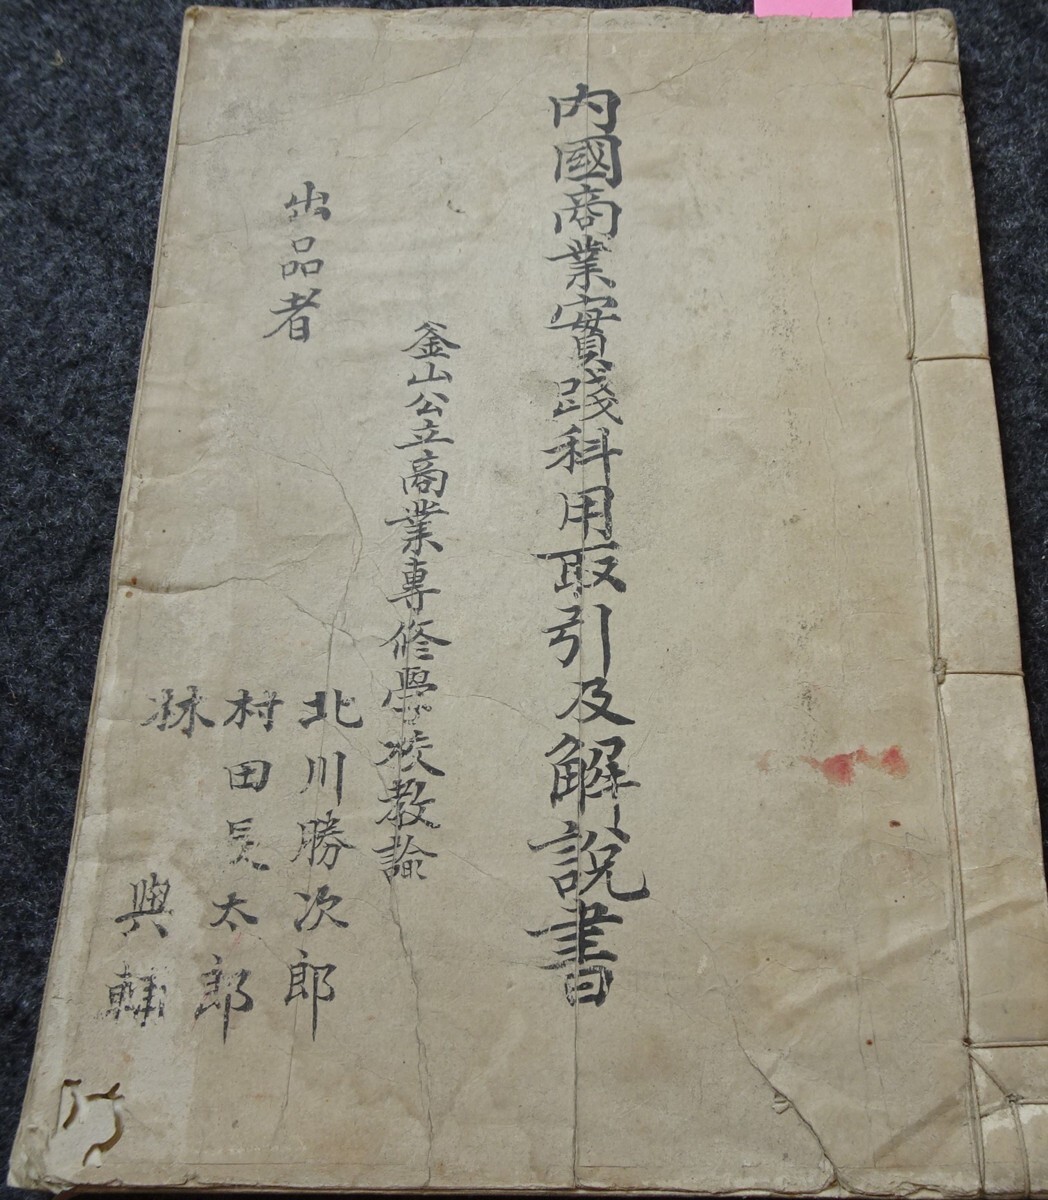 内國商業實踐科用取引及解說書
釜山公立商業專修學校教諭
出品者
北川勝次郎
村田長太郎
林 與輔